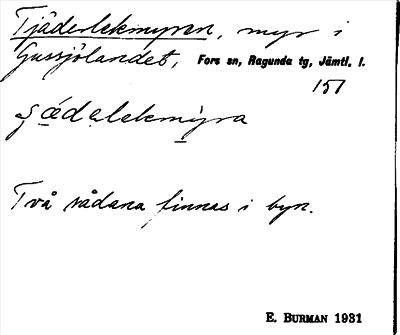 Tjäderlekmyren, myr i
Gussjölandet, Fors sn, Ragunda tg, Jämtl. l.
151
Två sådana finnas i byn.
E. BURMAN 1931